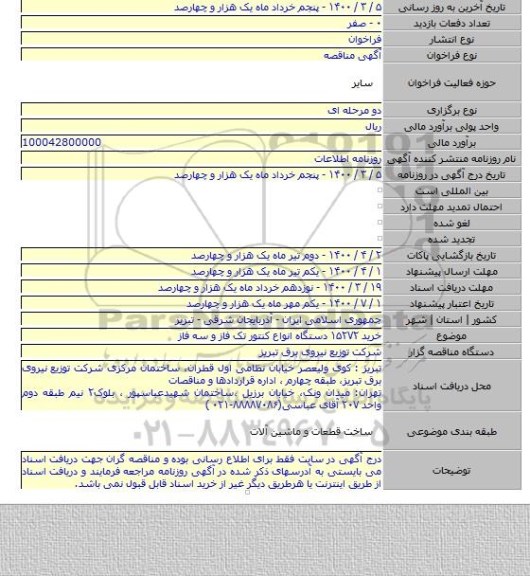 تاریخ آخرین به روز رسانی ۱۴۰۰ / ۳ / ۵ - پنجم خرداد ماه یک هزار و چهارصد
تعداد دفعات بازدید ۰ - صفر
نوع انتشار فراخوان
نوع فراخوان آگهی مناقصه
حوزه فعالیت فراخوان سایر
نوع برگزاری دو مرحله ای
واحد پولی برآورد مالی ریال
برآورد مالی 100042800000
نام روزنامه منتشر کننده آگهی روزنامه اطلاعات
تاریخ درج آگهی در روزنامه ۱۴۰۰ / ۳ / ۵ - پنجم خرداد ماه یک هزار و چهارصد
بین المللی است
احتمال تمدید مهلت دارد
لغو شده
تجدید شده
تاریخ بازگشایی پاکات ۱۴۰۰ / ۴ / ۲ - دوم تیر ماه یک هزار و چهارصد
مهلت ارسال پیشنهاد ۱۴۰۰ / ۴ / ۱ - یکم تیر ماه یک هزار و چهارصد
مهلت دریافت اسناد ۱۴۰۰ / ۳ / ۱۹ - نوزدهم خرداد ماه یک هزار و چهارصد
تاریخ اعتبار پیشنهاد ۱۴۰۰ / ۷ / ۱ - یکم مهر ماه یک هزار و چهارصد
کشور | استان | شهر جمهوری اسلامی ایران - آذربایجان شرقی - تبریز
موضوع خرید ۱۵۲۷۲ دستگاه انواع کنتور تک فاز و سه فاز
دستگاه مناقصه گزار شرکت توزیع نیروی برق تبریز
محل دریافت اسناد
تبریز : کوی ولیعصر خیابان نظامی اول قطران، ساختمان مرکزی شرکت توزیع نیروی
برق تبریز، طبقه چهارم ، اداره قراردادها و مناقصات
تهران: میدان ونک، خیابان برزیل ،ساختمان شهیدعباسپور ، بلوک۲ نیم طبقه دوم
واحد ۲۰۷ آقای عباسی(۸۸۸۷۰۸۶-۰۲۱)
طبقه بندی موضوعی ساخت قطعات و ماشین آلات
توضیحات
درج آگهی در سایت فقط برای اطلاع رسانی بوده و مناقصه گران جهت دریافت اسناد
می بایستی به آدرسهای ذکر شده در آگهی روزنامه مراجعه فرمایند و دریافت اسناد
از طریق اینترنت یا هرطریق دیگر غیر از خرید اسناد قابل قبول نمی باشد.
۰۲۱-۸۸۳۴۹۶۷۰-۵